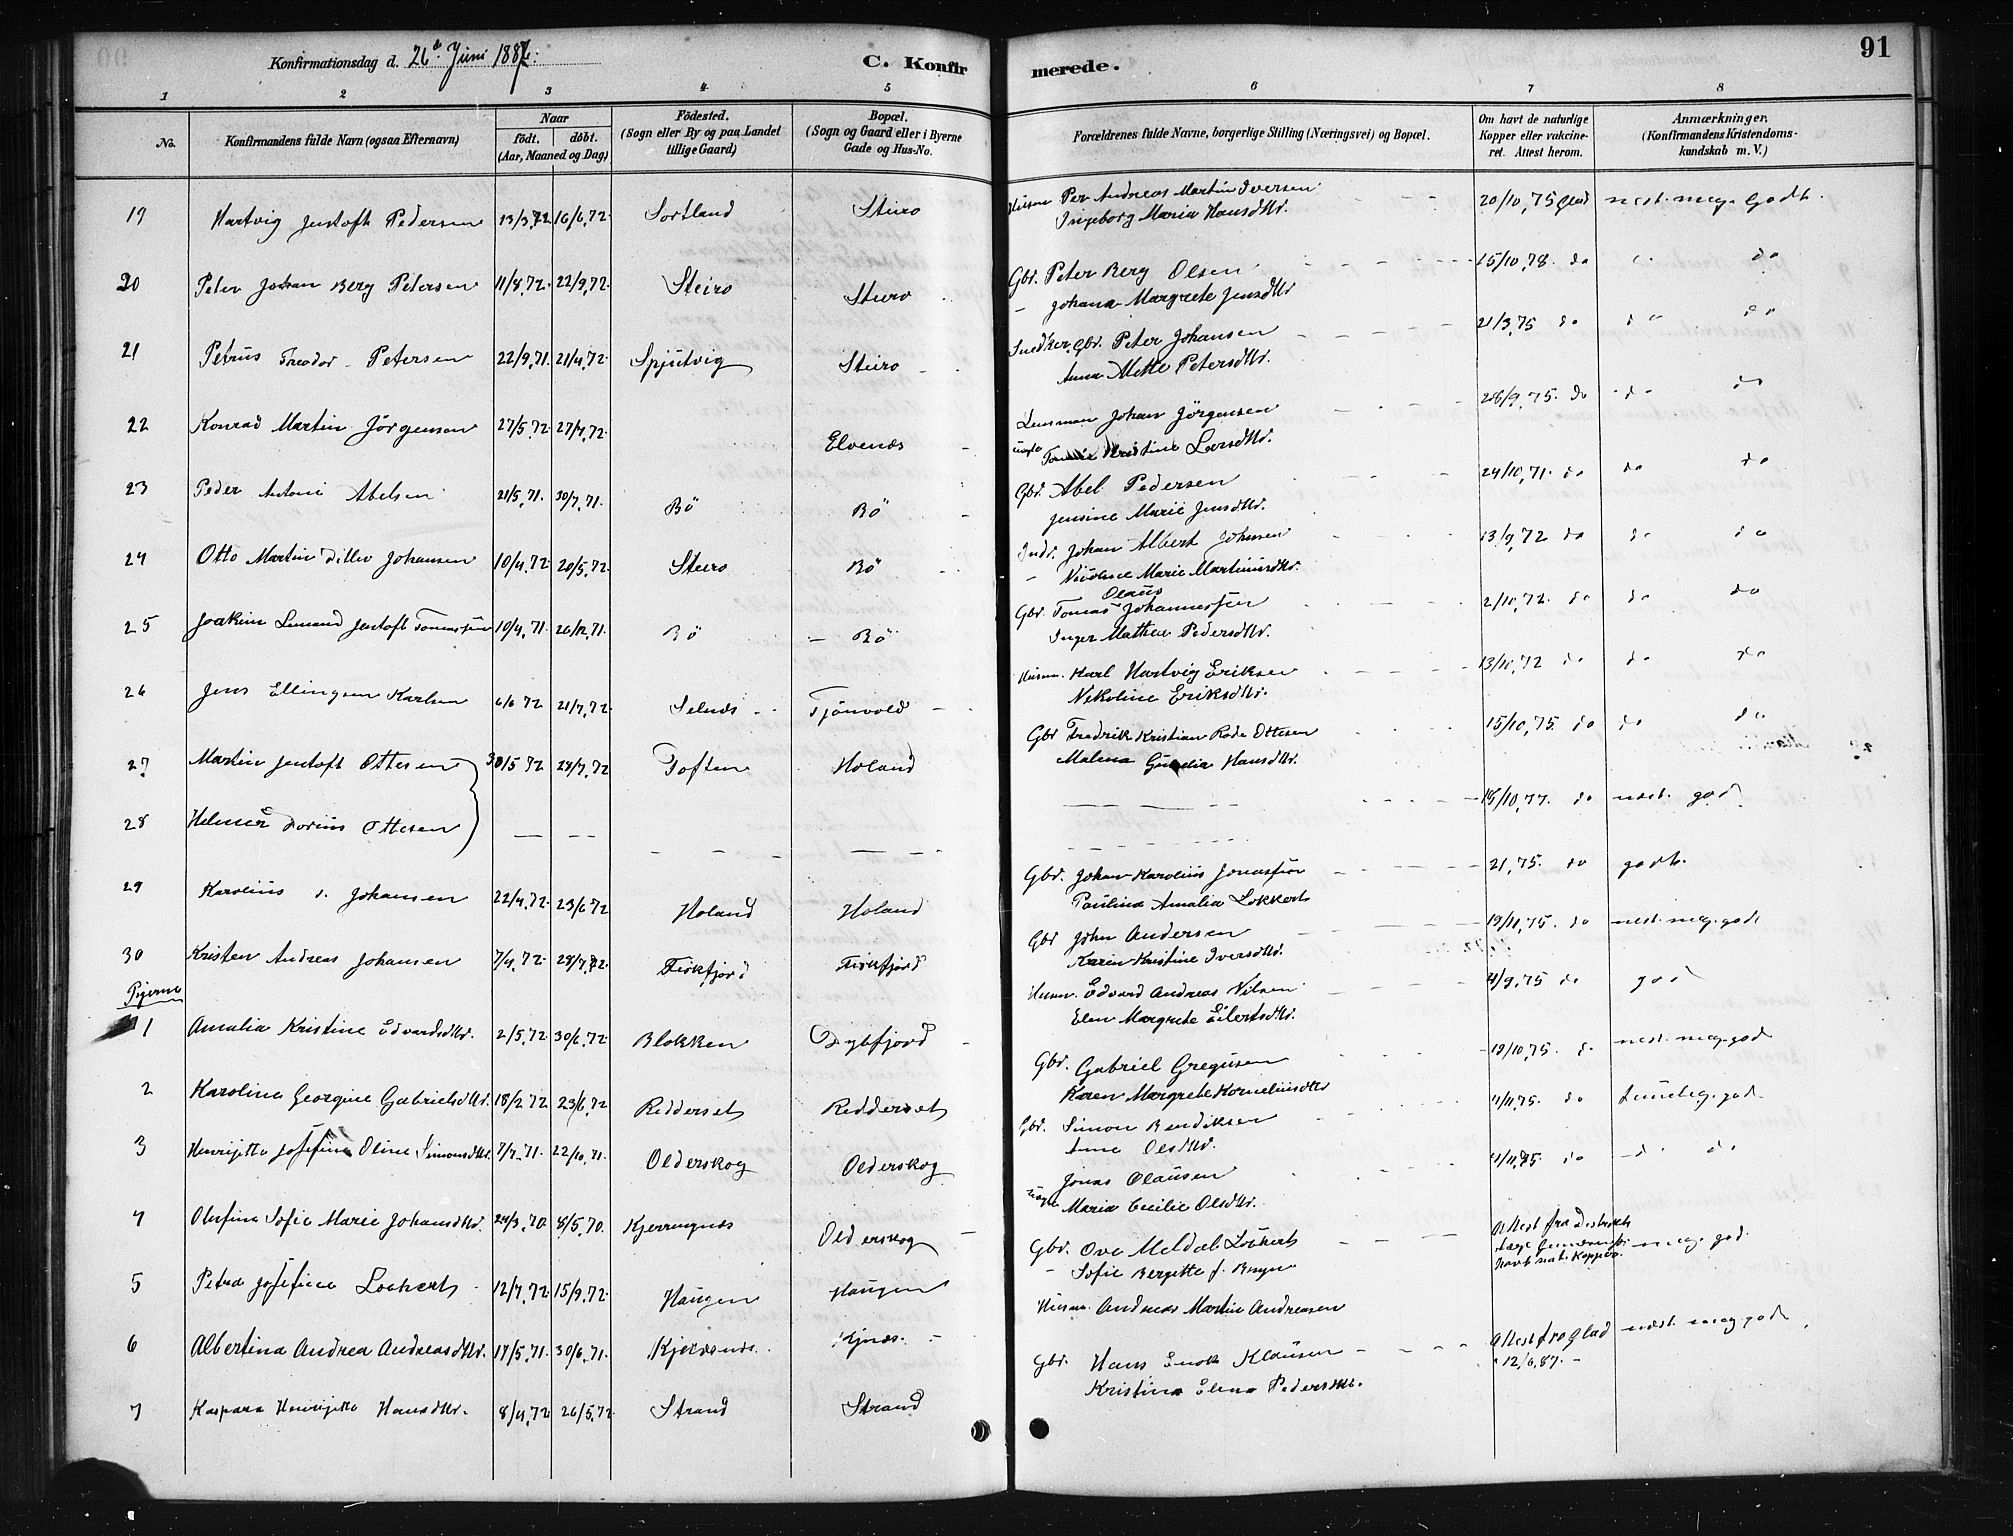 Konfirmationsdag d. 26de Juni 1887. C. Konfirmerede. 91
1 2 3 4 5 6 7 8
No. Konfirmandens fulde Navn (ogsaa Efternavn) Naar født. døbt. (Aar, Maaned og Dag) Födested. (Sogn eller By og paa Landet tillige Gaard) Bopæl. (Sogn og Gaard eller i Byerne Gade og Hus-No. Forældrenes fulde Navne, borgerlige Stilling (Næringsvei) og Bopæl. Om havt de naturlige Kopper eller vakcineret. Attest herom. Anmærkninger. (Konfirmandens Kristendomskundskab m. V.)
19 Hartvig Jentoft Pedersen 13/3.72 16/6.72 Sortland Steiro Husm Per Andreas Martin Iversen 20/10.75 Glad nest. meg. Godt.
Ingeborg Maria Hansdttr.
20 Peter Johan Berg Petersen 11/8.72. 22/9.72. Steiro Steiro Gbr. Peter Berg Olsen 15/10.78. do do
Johana Margrete Jensdttr
21 Petrus Treodor Petersen 22/9.71. 21/4.72 Spjutvig Steiro Snedker, Gbr. Peter Johansen 21/3.75 do do do
Anna Mette Petersdttr.
22 Konrad Martin Jörgensen 27/5.72. 27/7.72. Elvenæs Lensman Johan Jörgensen 28/9.75. do do do
Kristine Larsdttr.
23 Peder Antoni Abelsen 21/5.71. 30/7.71. Bö Bö Gbr. Abel Pedersen 24/10.71. do do do
Jensine Marie Jensdttr.
24 Otto Martin Johansen 10/4.72. 20/5.72. Steiro Bö Indr. Johan Albert Johnsen 13/9.72 do do do
Marie Martinusdttr.
25 Joakim Jentoft Tomassen 10/4.71. 26/12.71. Bö Bö Gbr. Tomas Olaus Johannessen 2/10.72. do do do
Inger Mathea Pedersdttr.
26 Jens Ellingsen Karlsen 6/6 72 21/7.72. Selnæs Tjönvold Husm. Karl Hartvig Eriksen 13/10.72 do do do
Nikoline Eriksdttr.
27 Martin Jentoft Ottesen 30/5 72 28/7.72 Toften Holand Gbr Fredrik Kristian Rode Ottesen 15/10.75. do do do
Malena Hansdttr.
28 Helmer Dorius Ottesen — — — — 18/10.77. do næst. god
29 Karolius Johansen 22/4.72. 23/6 72 Holand Holand Gbr. Johan Karolius Jonassen 21.75. do godt.
Paulina Amalia Lokkert
30 Kristen Andreas Johansen 7/4.72. 28/7.72. Fiskfjord Fiskfjord Gbr John Andersen 19/11.75. do nest. meg. god
Karen Kristine Iversdttr.
Pigerne
1 Amalia Kristine Edvardsdttr. 2/5.72 30/6.72 Blokken Dybfjord Husm. Edvard Andreas Nilsen 4/9.75 do god
Elen Margrete Eilertsdttr.
2 Karolina Georgine Gabrielsdttr. 18/2 72 23/6.72 Redderset Redderset Gbr. Gabriel Gregusen 18/10.75. do nest. meg. god
Karen Margrete Korneliusdttr
3 Henrijette Josefine Oline Simonsdttr. 7/7.71. 22/10.71. Olderskog Olderskog Gbr. Simon Bendiksen 4/11.75. do
Anne Olsdttr.
4 Olufina Sofie Marie Johansdttr. 24/3.70. 8/5.70. Kjerringnæs Olderskog Jonas Olausen 4/11.75 do do do
Maria Cecilie Olsdttr.
5 Petra Josefine Lockert 12/7.72. 15/9.72. Haugen Haugen Gbr. Ove Meldal Lockert Attest fra Distriktslæge havt nat. Kopper. meg. god.
Sofie Bergitte f. Bruyn
6 Albertina Andrea Andreasdttr. 17/5.71. 30/6.71. Husm. Andreas Martin Andreasen
7 Kaspara Henrijette Hansdttr. 8/4.72 26/5.72. Strand Strand Gbr. Hans Enok Klausen Attest fra Glad 12/6.87. næst. meg god
Kristina Elena Pedersdttr.